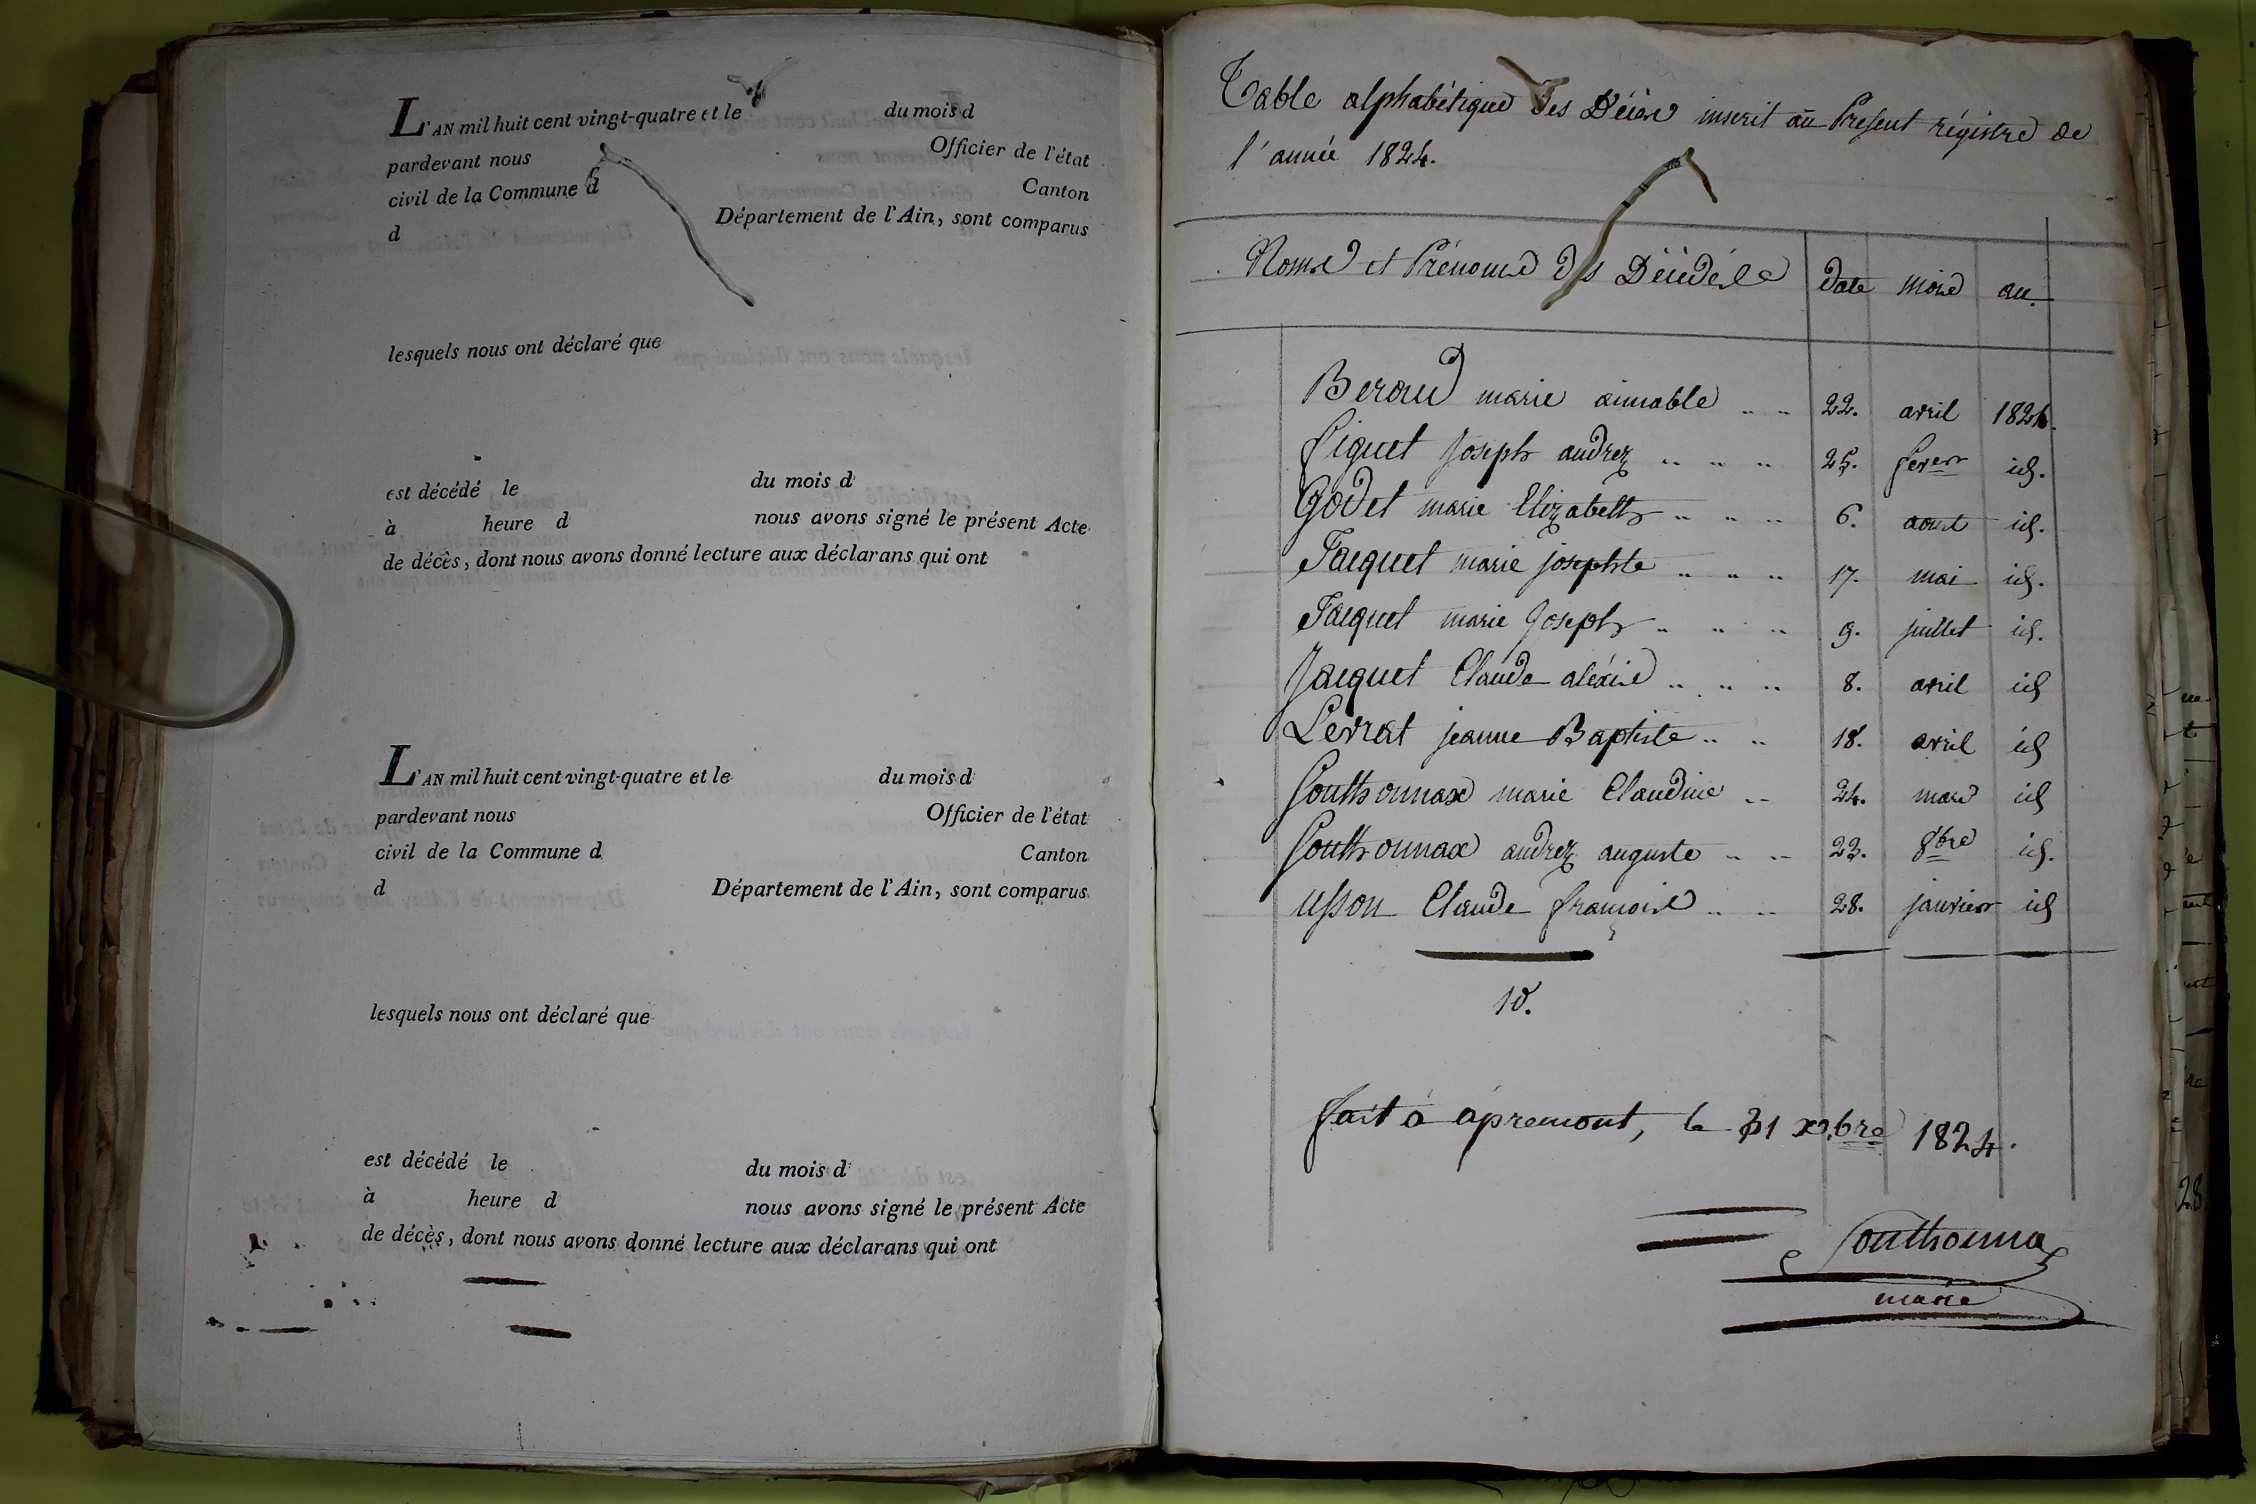 L'AN mil huit cent vingt-quatre et le du mois d
pardevant nous Officier de l'état
civil de la Commune d Canton
d Département de l'Ain, sont comparus
lesquels nous ont déclaré que
est décédé le du mois d
à heure d nous avons signé le présent Acte
de décès, dont nous avons donné lecture aux déclarans qui ont
L'AN mil huit cent vingt-quatre et le du mois d
pardevant nous Officier de l'état
civil de la Commune d Canton
d Département de l'Ain, sont comparus
lesquels nous ont déclaré que
est décédé le du mois d
à heure d nous avons signé le présent Acte
de décès, dont nous avons donné lecture aux déclarans qui ont
Table alphabétique des Décès inscrit au Present régistre de
l'année 1824.
Noms et Prénoms des Décédés date mois an.
Beroud marie aimable 22. avril 1824.
Piquet Joseph andrez 25. fever id.
Godet marie Elizabeth 6. aout id.
Jacquet marie josephte 17. mai id.
Jacquet marie Joseph 9. juillet id.
Jacquet Claude aléxis 8. avril id
Levrat jeanne Baptiste 18. avril id
Gouthonnax marie Claudine 24. mars id
Gouthonnax andrez auguste 22. 8bre id.
usson Claude françois 28. janvier id
10.
fait à apremont, le 31 xbre 1824.
Gouthonnax
maire
28